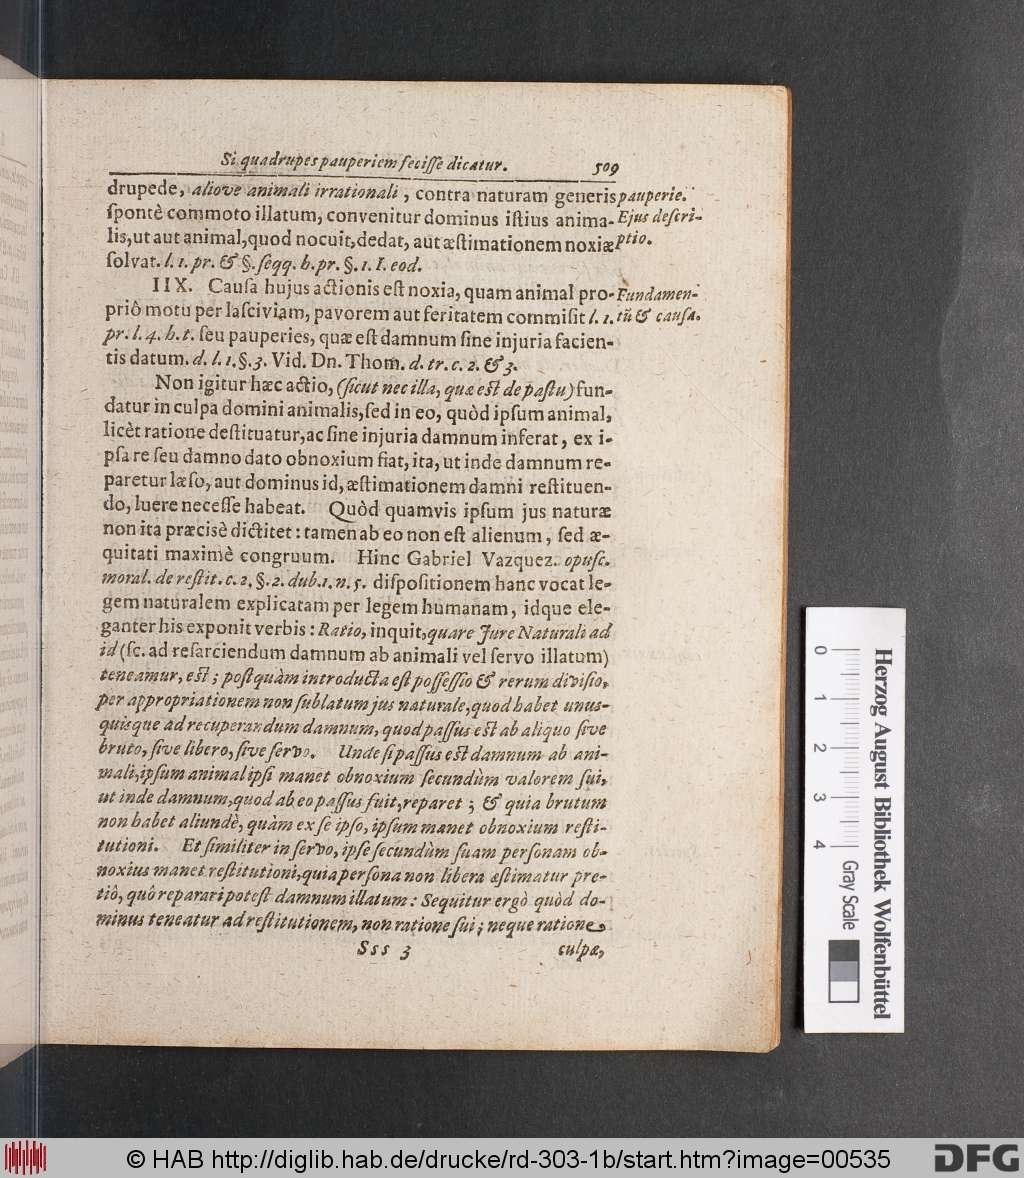 Si quadrupes pauperiem fecisse dicatur. 509
drupede, aliove animali irrationali, contra naturam generis
pauperie.
spontè commoto illatum, convenitur dominus istius anima-
Ejus descri-
lis, ut aut animal, quod nocuit, dedat, aut æstimationem noxiæ
ptio.
solvat. l. 1. pr. & §. seqq. h. pr. §. 1. I. eod.
IIX. Causa hujus actionis est noxia, quam animal pro-
Fundamen-
priô motu per lasciviam, pavorem aut feritatem commisit l. 1.
tũ & causa.
pr. l. 4. h. t. seu pauperies, quæ est damnum sine injuria facien-
tis datum. d. l. 1. §. 3. Vid. Dn. Thom. d. tr. c. 2. & 3.
Non igitur hæc actio, (sicut nec illa, quæ est de pastu) fun-
datur in culpa domini animalis, sed in eo, quòd ipsum animal,
licèt ratione destituatur, ac sine injuria damnum inferat, ex i-
psa re seu damno dato obnoxium fiat, ita, ut inde damnum re-
paretur læso, aut dominus id, æstimationem damni restituen-
do, luere necesse habeat. Quòd quamvis ipsum jus naturæ
non ita præcisè dictitet: tamen ab eo non est alienum, sed æ-
quitati maximè congruum. Hinc Gabriel Vazquez. opusc.
moral. de restit. c. 2. §. 2. dub. 1. n. 5. dispositionem hanc vocat le-
gem naturalem explicatam per legem humanam, idque ele-
ganter his exponit verbis: Ratio, inquit, quare Jure Naturali ad
id (sc. ad resarciendum damnum ab animali vel servo illatum)
teneamur, est; postquàm introducta est possessio & rerum divisio,
per appropriationem non sublatum jus naturale, quod habet unus-
quisque ad recuperandum damnum, quod passus est ab aliquo sive
bruto, sive libero, sive servo. Unde si passus est damnum ab ani-
mali, ipsum animal ipsi manet obnoxium secundùm valorem sui,
ut inde damnum, quod ab eo passus fuit, reparet; & quia brutum
non habet aliundè, quàm ex se ipso, ipsum manet obnoxium resti-
tutioni. Et similiter in servo, ipse secundùm suam personam ob-
noxius manet restitutioni, quia persona non libera æstimatur pre-
tiô, quô reparari potest damnum illatum: Sequitur ergò quòd do-
minus teneatur ad restitutionem, non ratione sui; neque ratione
Sss 3 culpæ,
0 1 2 3 4
Gray Scale
Herzog August Bibliothek Wolfenbüttel
© HAB http://diglib.hab.de/drucke/rd-303-1b/start.htm?image=00535
DFG